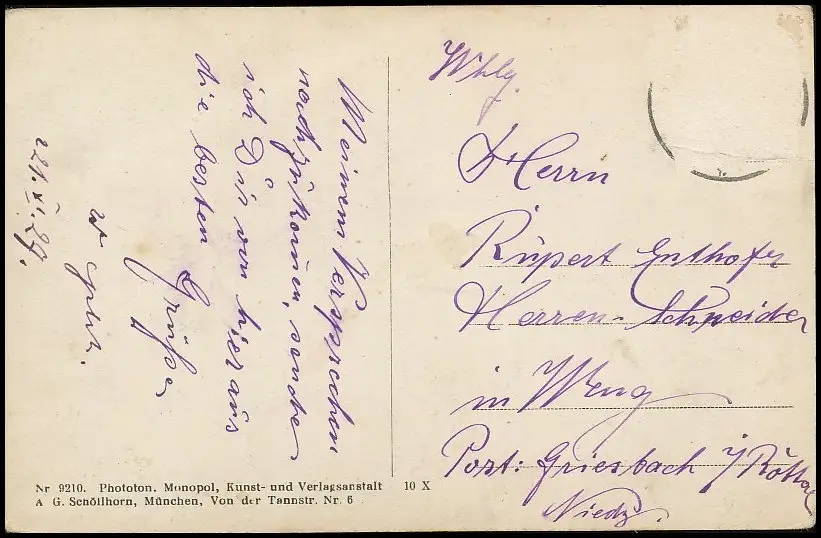 Meinem Versprechen
nachzukommen, sende
ich Dir von hier aus
die besten
Grüße
Whlg.
Herrn
Rupert Enthofer
Herren-Schneider
in Weng
Post: Griesbach i/Rottal
Niedb.
Nr 9210. Phototon. Monopol, Kunst- und Verlagsanstalt 10 X
A G. Schöllhorn, München, Von der Tannstr. Nr. 6